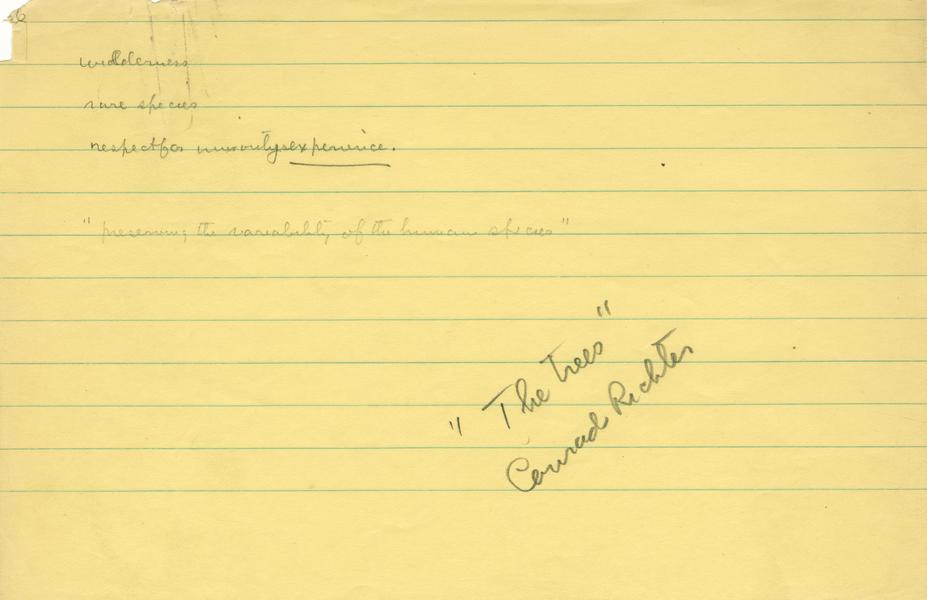 6
wilderness
rare species
respect for minority experience.
"preserving the variability of the human species"
"The Trees"
Conrad Richter